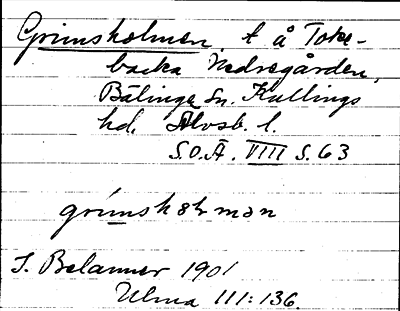 Grimsholmen, t å Toke-
backa Nedregården,
Bälinge sn. Kullings
hd, Älvsb. l.
S.O.Ä. VIII s. 63
grimshəlmən
S. Belanner 1901
Ulma 111:136.